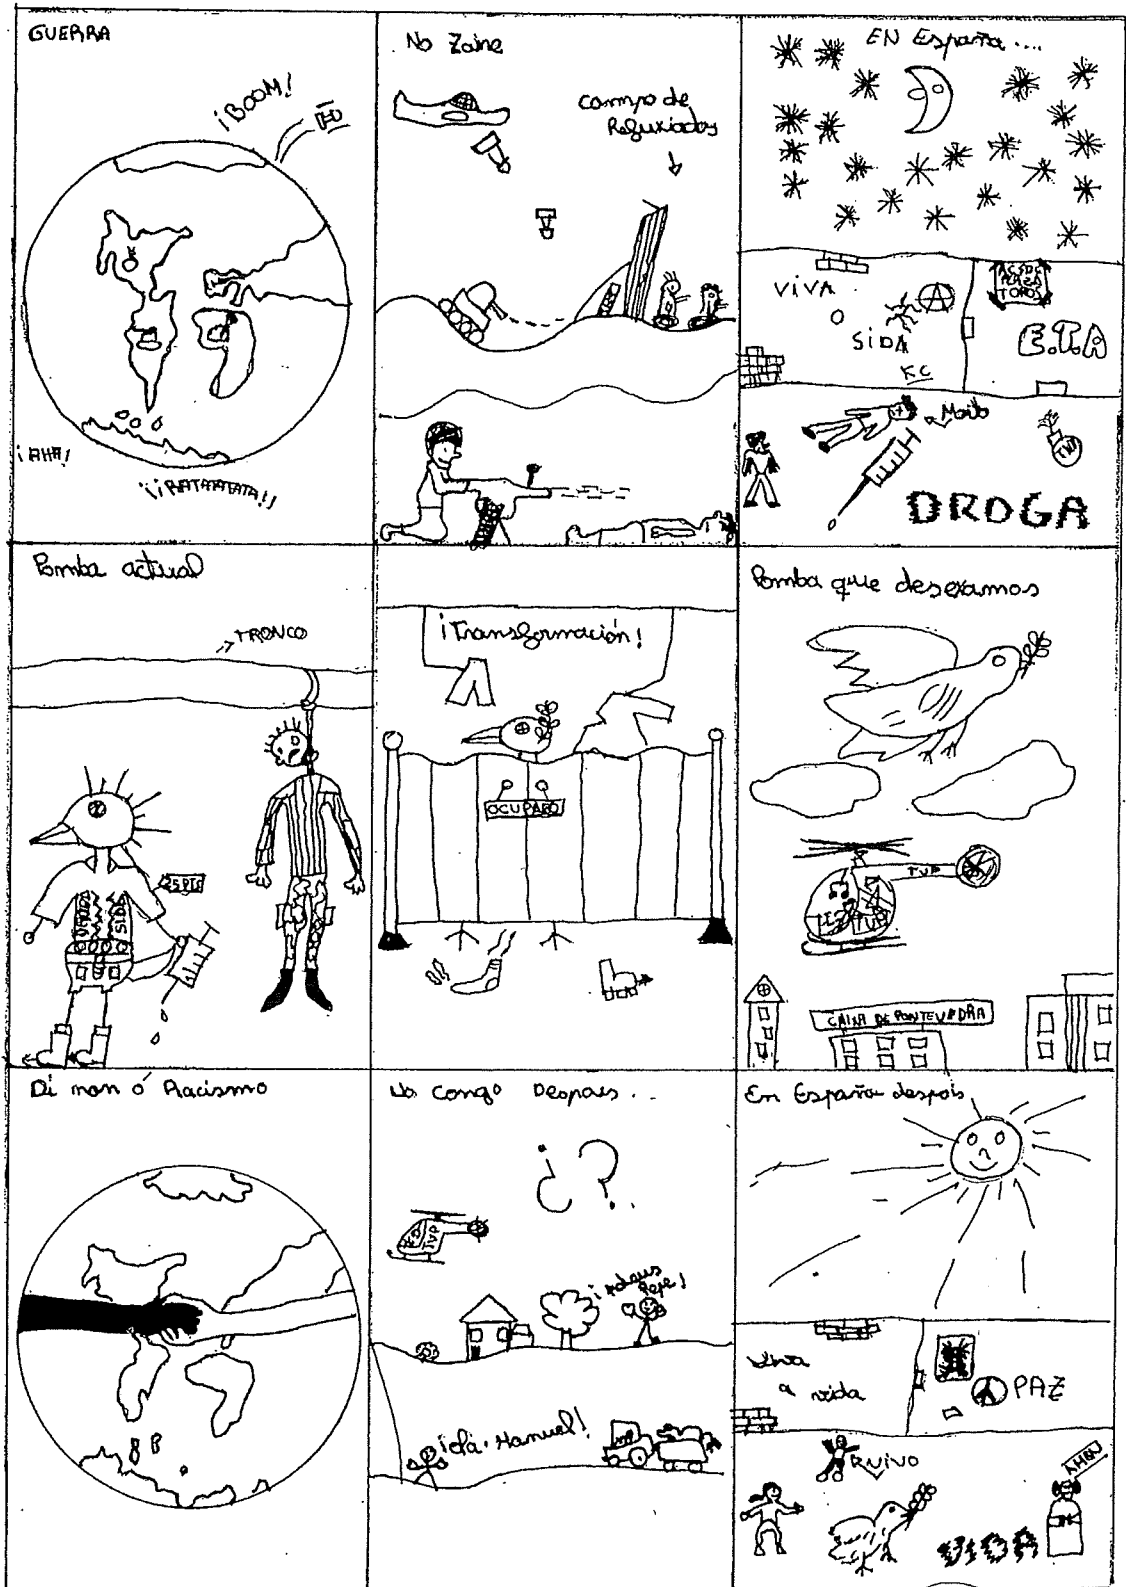 GUERRA
¡BOOM!
¡AHA!
¡¡RATATATATA!!
No Zaire
Campo de
Refuxiados
EN España....
VIVA
SIDA
KC
AC/DC
PLAZA
TOROS
E.T.A
Morto
TNT
DROGA
Pomba actual
TRONCO
DROGA
SIDA
¡Transformación!
OCUPADO
Pomba que desexamos
TVP
CAIXA DE PONTEVEDRA
Di non ó Racismo
No Congo Despois...
¿?
TVP
¡Adeus
Pepe!
¡Olá Manuel!
En España despois
Viva
a vida
PAZ
VIVO
AMEN
VIDA